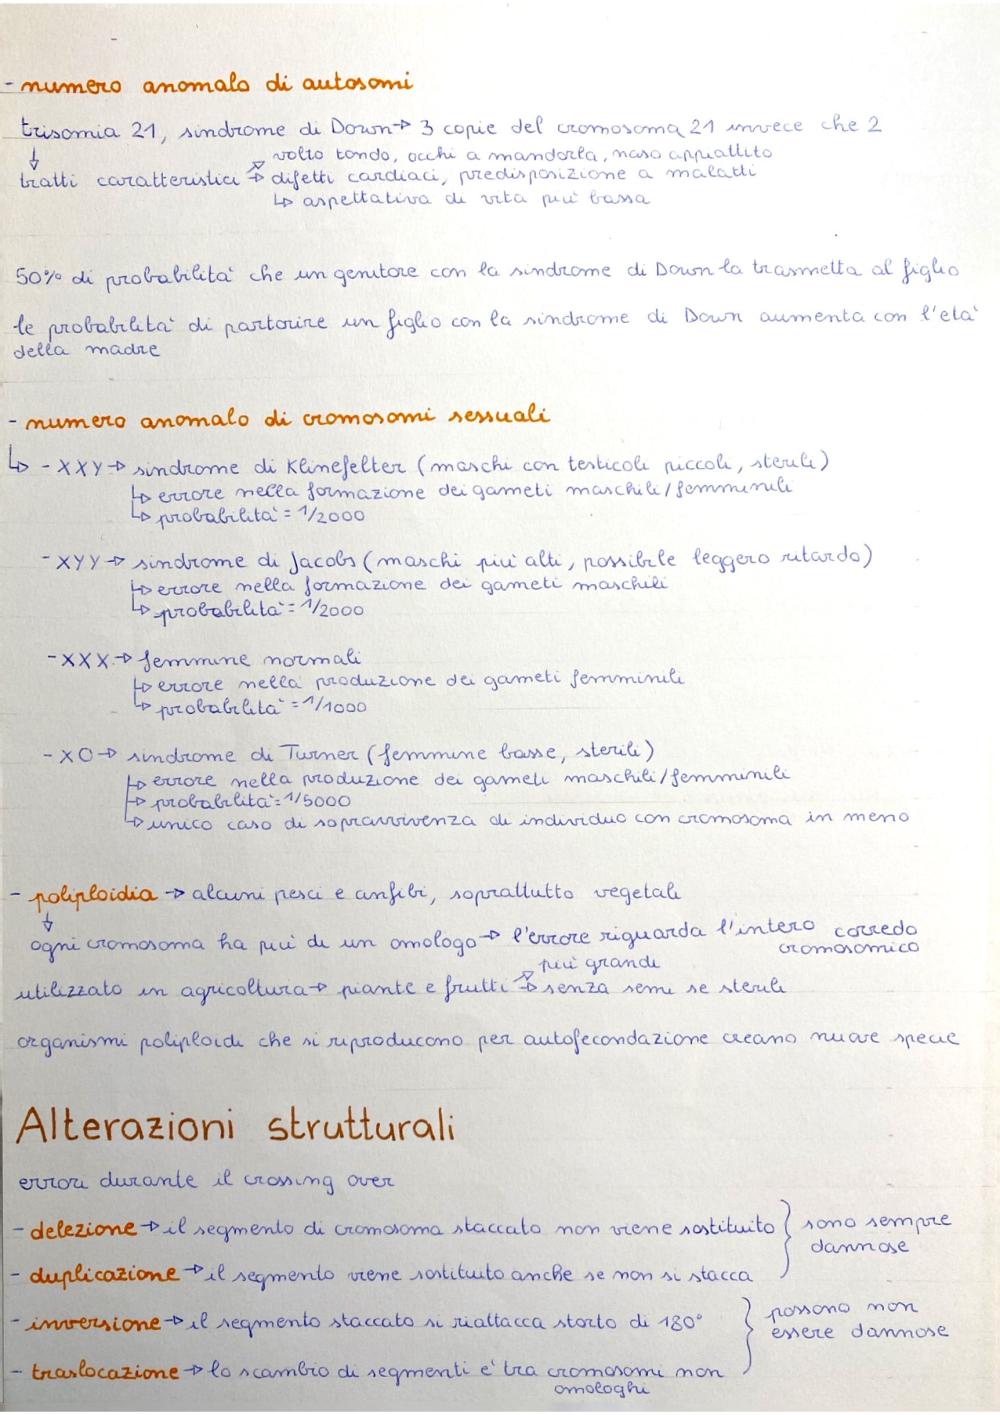 - numero anomalo di autosomi
trisomia 21, sindrome di Down → 3 copie del cromosoma 21 invece che 2
↓ volto tondo, occhi a mandorla, naso appiattito
tratti caratteristici → difetti cardiaci, predisposizione a malatti
↳ aspettativa di vita più bassa
50% di probabilità che un genitore con la sindrome di Down la trasmetta al figlio
le probabilità di partorire un figlio con la sindrome di Down aumenta con l'età
della madre
- numero anomalo di cromosomi sessuali
↳ - XXY → sindrome di Klinefelter (maschi con testicoli piccoli, sterili)
↳ errore nella formazione dei gameti maschili/femminili
↳ probabilità = 1/2000
- XYY → sindrome di Jacobs (maschi più alti, possibile leggero ritardo)
↳ errore nella formazione dei gameti maschili
↳ probabilità = 1/2000
- XXX → femmine normali
↳ errore nella produzione dei gameti femminili
↳ probabilità = 1/1000
- XO → sindrome di Turner (femmine basse, sterili)
↳ errore nella produzione dei gameti maschili/femminili
↳ probabilità = 1/5000
↳ unico caso di sopravvivenza di individuo con cromosoma in meno
- poliploidia → alcuni pesci e anfibi, soprattutto vegetali
↓
ogni cromosoma ha più di un omologo → l'errore riguarda l'intero corredo
cromosomico
più grandi
utilizzato in agricoltura → piante e frutti → senza semi se sterili
organismi poliploidi che si riproducono per autofecondazione creano nuove specie
Alterazioni strutturali
errori durante il crossing over
- delezione → il segmento di cromosoma staccato non viene sostituito } sono sempre
dannose
- duplicazione → il segmento viene sostituito anche se non si stacca
- inversione → il segmento staccato si riattacca storto di 180° } possono non
essere dannose
- traslocazione → lo scambio di segmenti è tra cromosomi non
omologhi